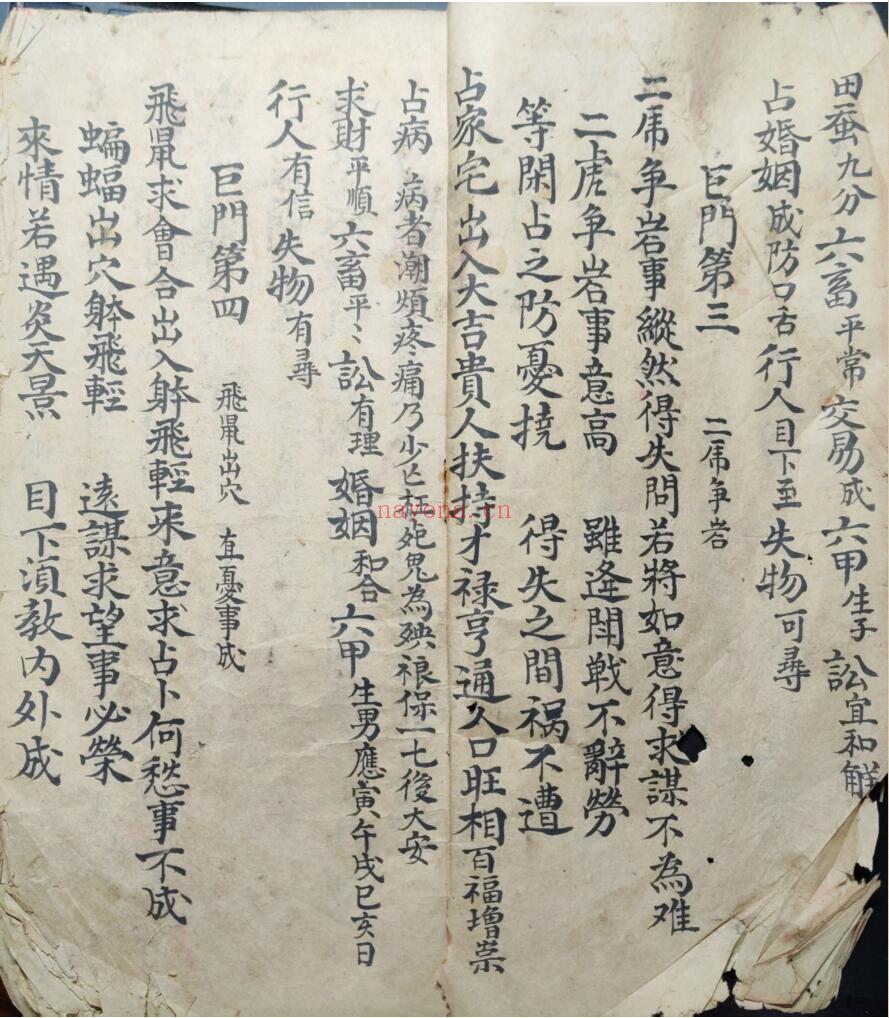 田蚕九分六畜平常交易成六甲生子訟宜和解
占婚姻成防口舌行人目下至失物可尋
巨門第三 二虎争岩
二虎争岩事縱然得失問若將如意得求謀不為难
二虎争岩事意高 雖逢閗戦不辭勞
等閑占之防憂撓 得失之間禍不遭
占家宅出入大吉貴人扶持才禄亨通人口旺相百福增崇
占病 病者潮煩疼痛乃少亡枉死鬼為殃禳保一七後大安
求財平順六畜平〻訟有理婚姻和合六甲生男應寅午戌巳亥日
行人有信失物有尋
巨門第四 飛鼠出穴 直憂事成
飛鼠求會合出入躰飛輕来意求占卜何愁事不成
蝙蝠出穴躰飛輕 遠謀求望事必榮
來情若遇炎天景 目下須教内外成
nayona.cn